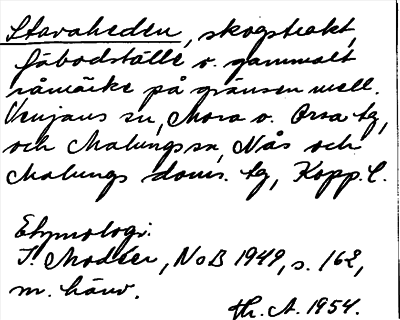 Stavaheden, skogstrakt,
fäbodställe o. gammalt
råmärke på gränsen mell.
Venjans sn, Mora o. Orsa tg,
och Malungs sn, Nås och
Malungs doms. tg, Kopp. l.
Etymologi:
I. Modéer, NoB 1949, s. 162,
m. hänv.
th. A. 1954.